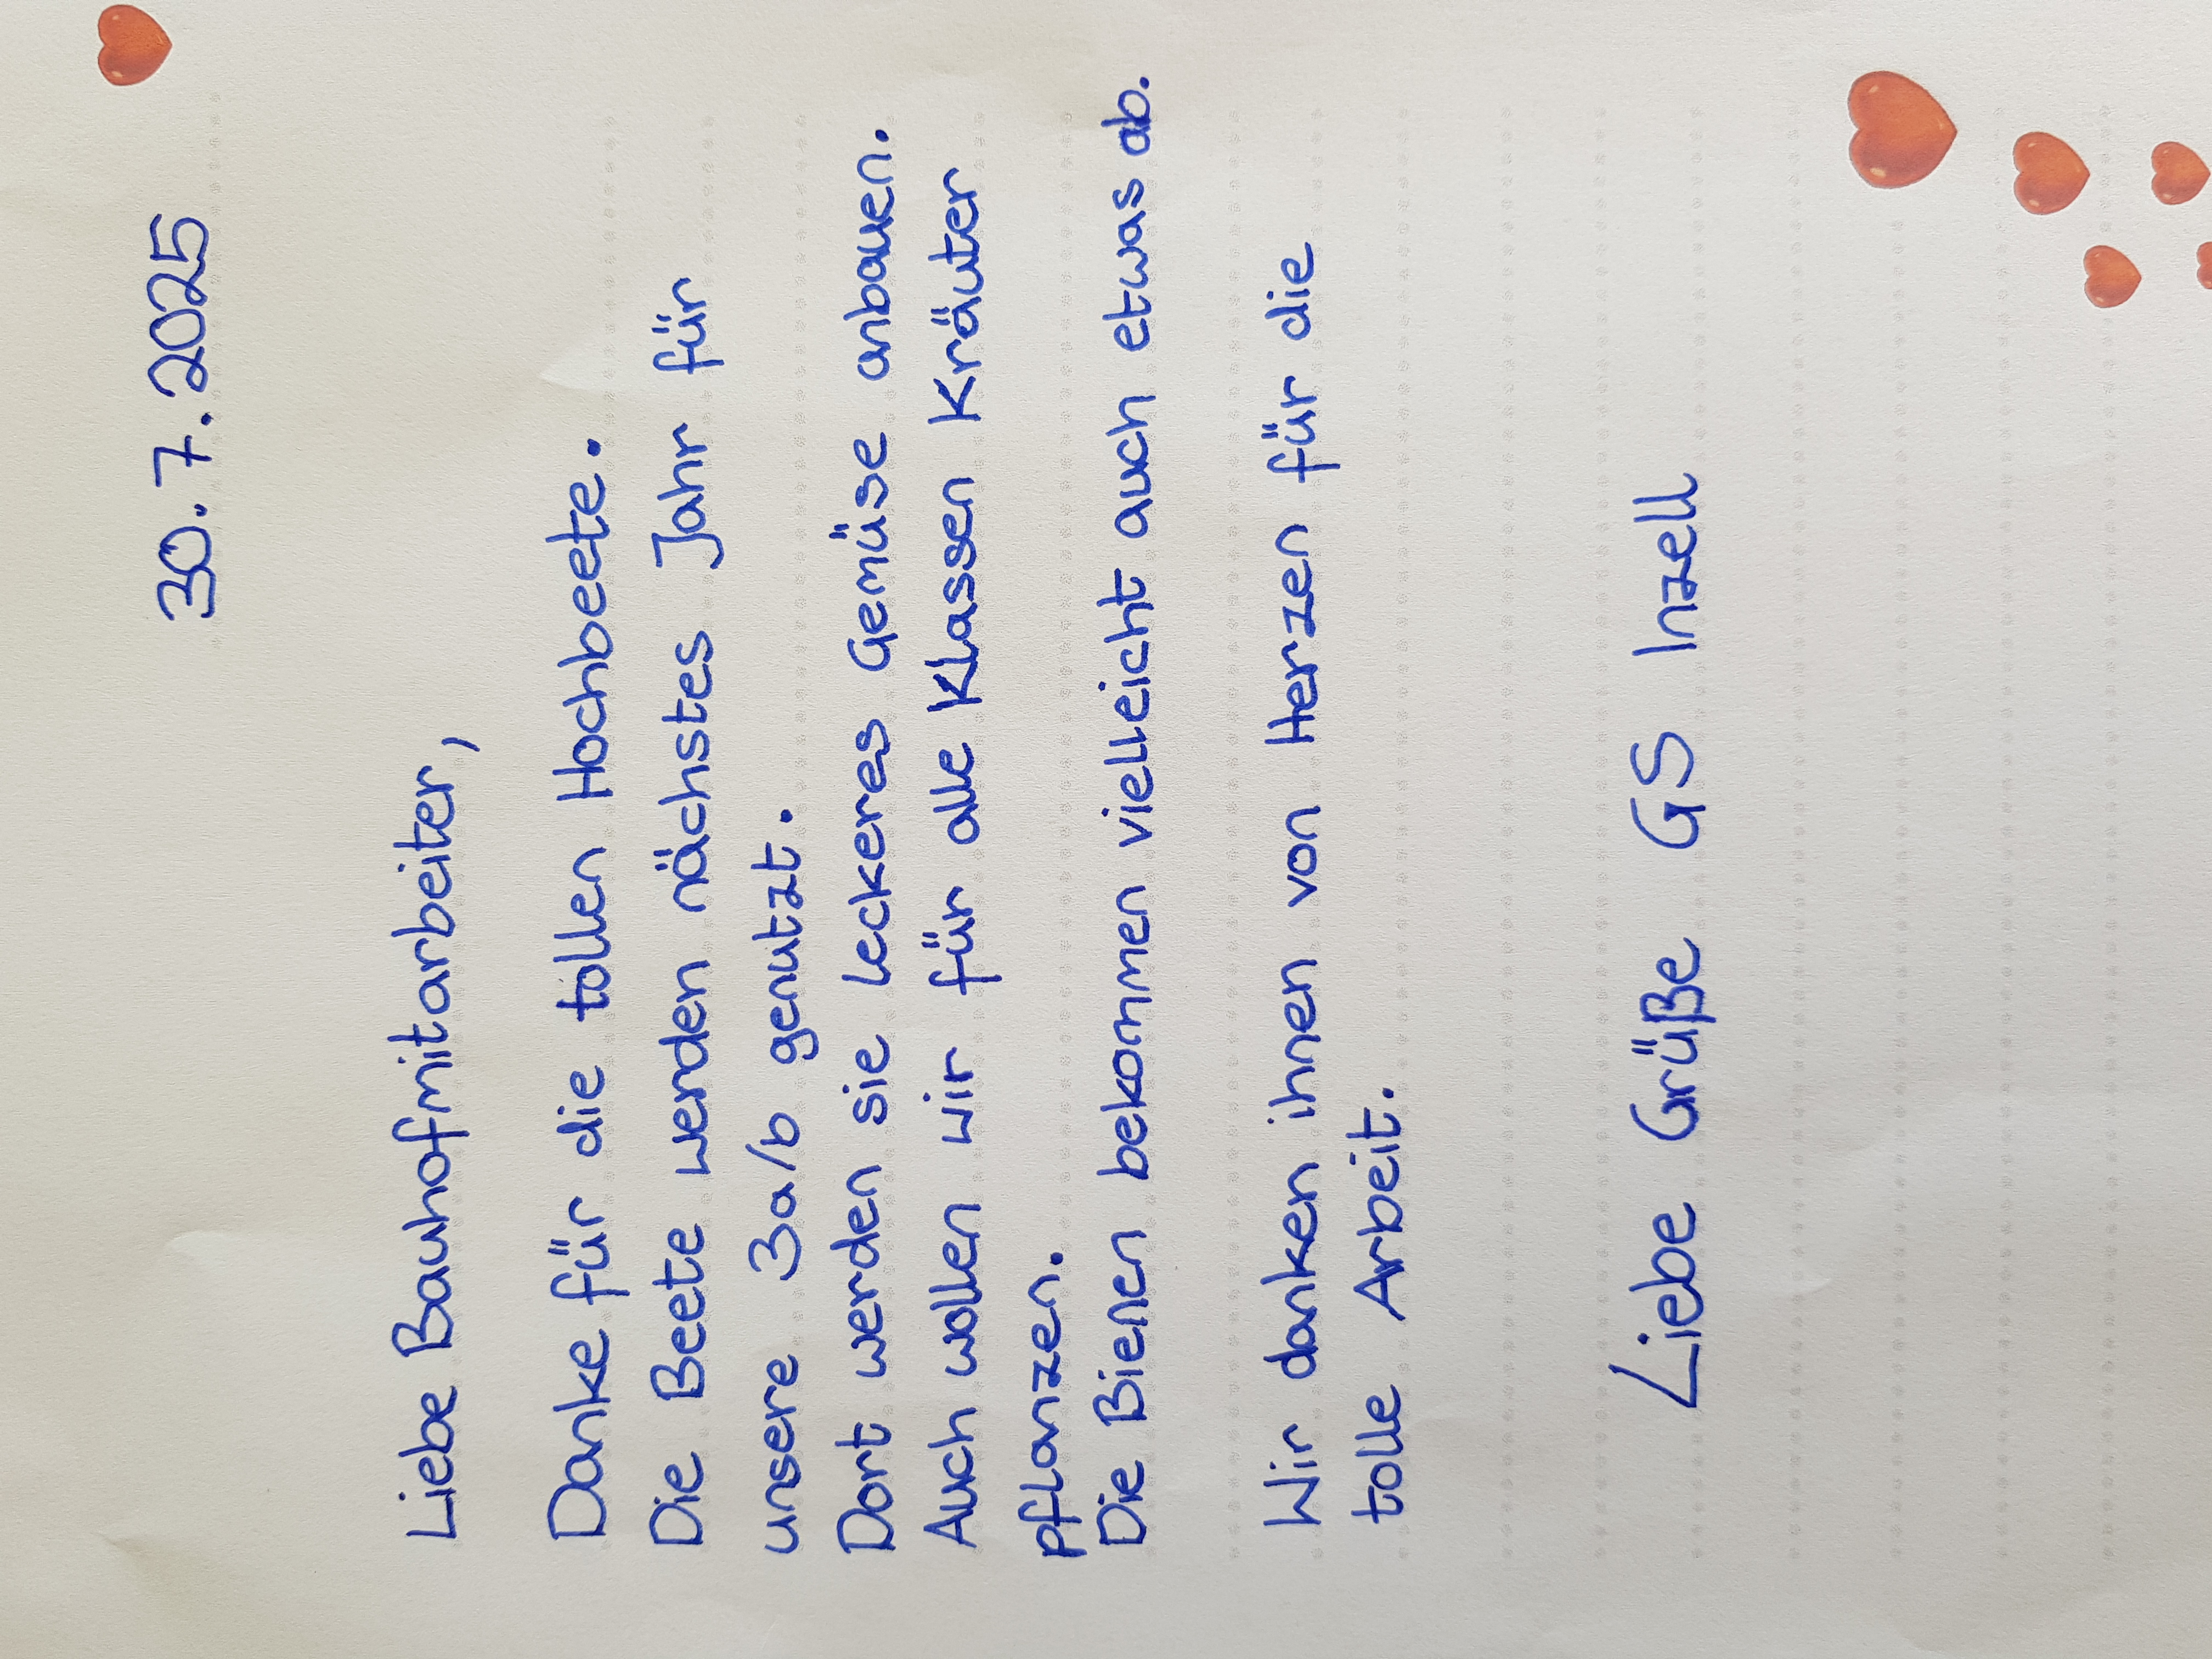 30.7.2025
Liebe Bauhofmitarbeiter,
Danke für die tollen Hochbeete.
Die Beete werden nächstes Jahr für
unsere 3a/b genutzt.
Dort werden sie leckeres Gemüse anbauen.
Auch wollen wir für alle Klassen Kräuter
pflanzen.
Die Bienen bekommen vielleicht auch etwas ab.
Wir danken ihnen von Herzen für die
tolle Arbeit.
Liebe Grüße GS Inzell